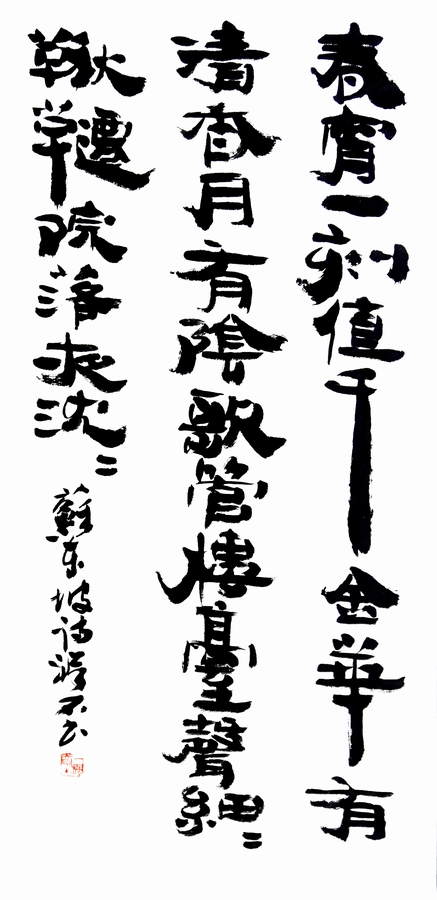 春宵一刻值千金華有
清香月有陰歌管樓臺聲細〻
鞦韆院落夜沈〻
蘇東坡詩